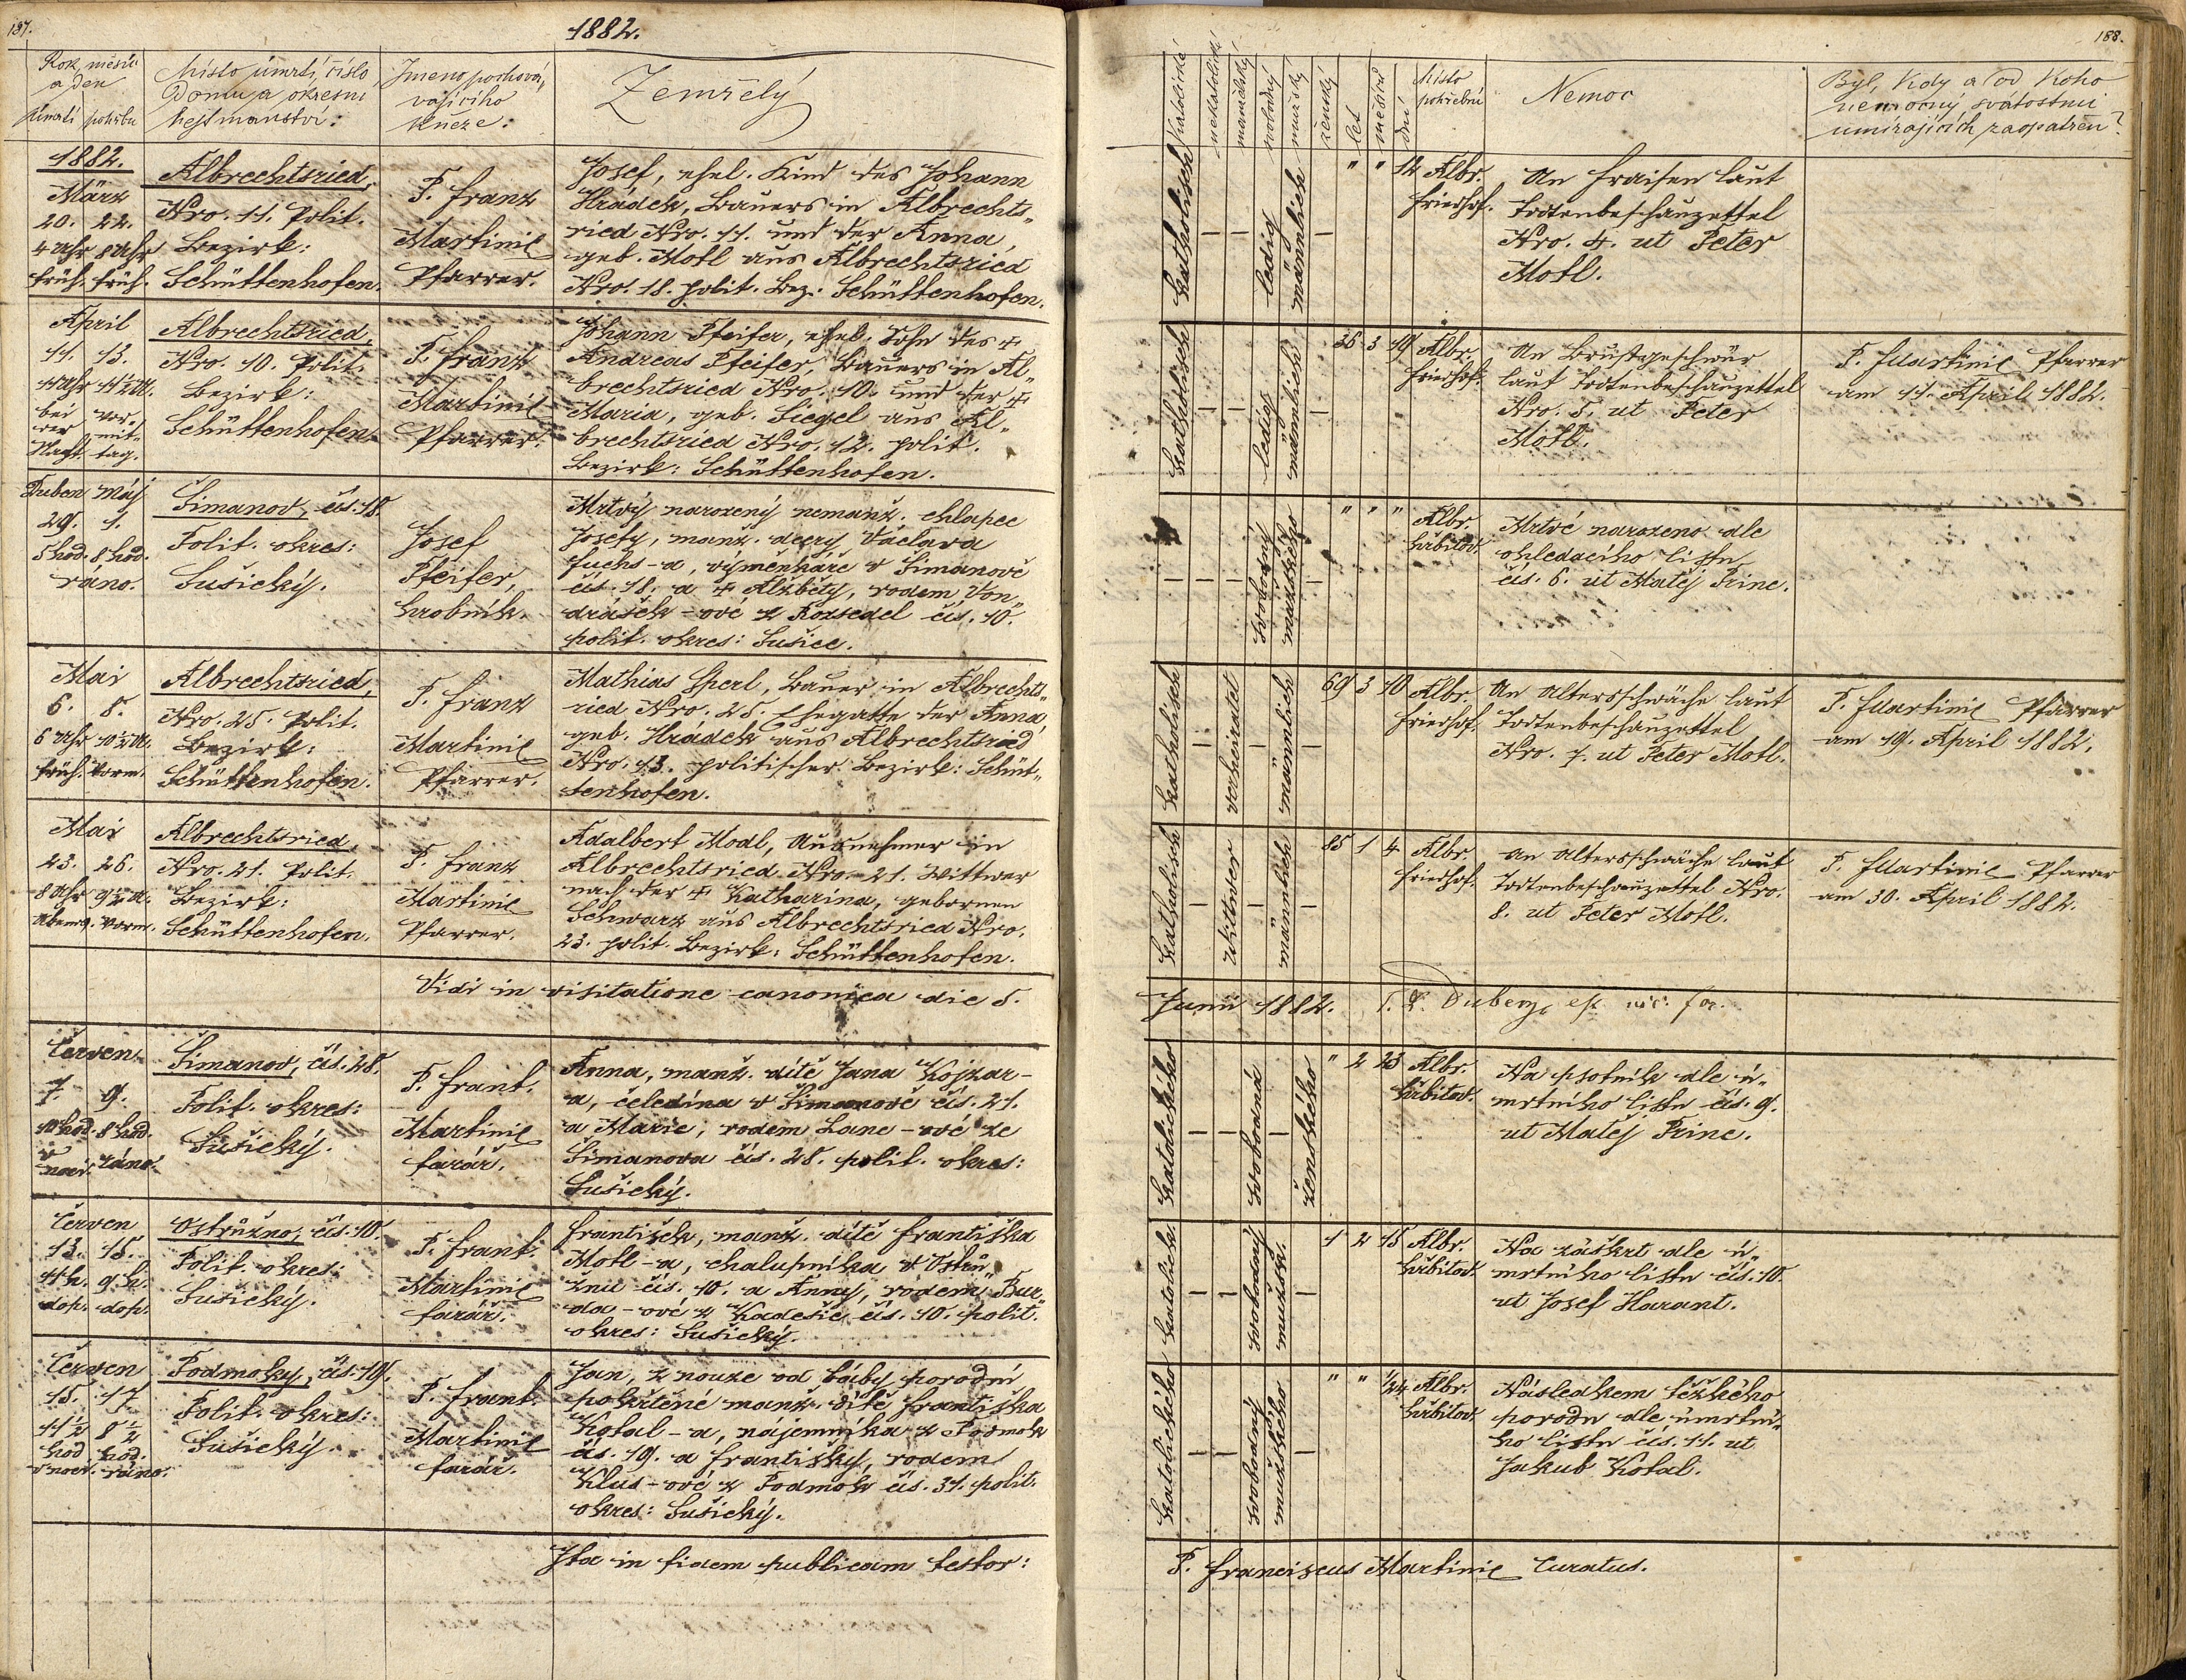 137.
1882.
Rok, měsíc
a den
úmrtí pohřbu
Místo úmrtí, číslo
Domu a okresní
hejtmanství:
Jmeno pochová,
vajícího
kněze:
Zemřelý
1882.
März
20. 22.
4 Uhr 8 Uhr
früh. früh.
Albrechtsried,
Nro. 11. Polit.
Bezirk:
Schüttenhofen.
P. Franz
Martinic
Pfarrer.
Josef, ehel. Kind des Johann
Hrádek, Bauers in Albrechts„
ried Nro. 11. und der Anna,
geb. Motl aus Albrechtsried
Nro. 18. polit. Bez. Schüttenhofen.
April
11. 13.
11 Uhr 11½ U.
bei vor-
der mit-
Nacht. tag.
Albrechtsried,
Nro. 10. Polit.
Bezirk:
Schüttenhofen.
P. Franz
Martinic
Pfarrer.
Johann Pfeifer, ehel. Sohn des ✝
Andreas Pfeifer, Bauers in Al„
brechtsried Nro. 10. und der ✝
Maria, geb. Siegel aus Al„
brechtsried Nro. 12. polit.
Bezirk: Schüttenhofen.
Duben Máj
29. 1.
5 hod. 8 hod.
ráno.
Šimanov, čís. 18.
Polit. okres:
Sušický.
Josef
Pfeifer,
hrobník.
Mrtvý narozený nemanž. chlapec
Josefy, manž. dcery Václava
Fuchs-a, výměnkáře v Šimanově
čís. 18. a ✝ Alžběty, rodem Von„
drášek-ové z Rozsedel čís. 10.
polit. okres: Sušice.
Mai
6. 8.
6 Uhr 10½ U.
früh. Vorm.
Albrechtsried,
Nro. 25. Polit.
Bezirk:
Schüttenhofen.
P. Franz
Martinic
Pfarrer.
Mathias Sperl, Bauer in Albrechts„
ried Nro. 25. Ehegatte der Anna,
geb. Hrádek aus Albrechtsried
Nro. 13. politischer Bezirk: Schüt„
tenhofen.
Mai
23. 26.
8 Uhr 9½ U.
Abends. Vorm.
Albrechtsried,
Nro. 21. Polit.
Bezirk:
Schüttenhofen.
P. Franz
Martinic
Pfarrer.
Adalbert Modl, Ausnehmer in
Albrechtsried Nro. 21. Wittwer
nach der ✝ Katharina, gebornen
Schwarz aus Albrechtsried Nro.
23. polit. Bezirk: Schüttenhofen.
Vidi in visitatione canonica die 5.
Červen
7. 9.
10 hod. 8 hod.
v
noci. ráno.
Šimanov, čís. 28.
Polit. okres:
Sušický.
P. Frant.
Martinic
farář.
Anna, manž. dítě Jana Kojzar-
a, čeledína v Šimanově čís. 21.
a Marie, rodem Lanc-ové ze
Šimanova čís. 28. polit. okres:
Sušický.
Červen
13. 15.
11 h. 9 h.
dop. dop.
Ostružno, čís. 10.
Polit. okres:
Sušický.
P. Frant.
Martinic
farář.
František, manž. dítě Františka
Motl-a, chalupníka v Ostru„
žnu čís. 10. a Anny, rodem Bur„
da-ové z Kadešic čís. 10. polit.
okres: Sušický.
Červen
15. 17.
11½ 8½
hod hod.
v noci. ráno.
Podmoky, čís. 19.
Polit. okres:
Sušický.
P. Frant.
Martinic
farář.
Jan, z nouze od báby porodní
pokřtěné manž. dítě Františka
Kotal-a, nájemníka z Podmok
čís. 19. a Františky, rodem
Klus-ové z Podmok čís. 31. polit.
okres: Sušický.
Ita in fidem publicam testor:
188.
Katolické
nekatolické
manželský
svobodný
mužský
ženský
let
měsíců
dní
Místo
pohřební
Nemoc
Byl, kdy a od koho
nemocný svátostmi
umírajících zaopatřen?
katholisch
ledig
männlich
" " 14
Albr.
Friedhof.
An Fraisen laut
Todtenbeschauzettel
Nro. 4. ut Peter
Motl.
katholisch
ledig
männlich
36 3 19
Albr.
Friedhof.
An Brustgeschwür
laut Todtenbeschauzettel
Nro. 5. ut Peter
Motl.
P. Martinic Pfarrer
am 11. April 1882.
svobodný
mužského
" " "
Albr.
hřbitov.
Mrtvé narozeno dle
ohledacího listu
čís. 6. ut Matěj Princ.
katholisch
verheiratet
männlich
69 3 10
Albr.
Friedhof.
An Altersschwäche laut
Todtenbeschauzettel
Nro. 7. ut Peter Motl.
P. Martinic Pfarrer
am 19. April 1882.
katholisch
Wittwer
männlich
85 1 4
Albr.
Friedhof.
An Altersschwäche laut
Todtenbeschauzettel Nro.
8. ut Peter Motl.
P. Martinic Pfarrer
am 30. April 1882.
Junii 1882.
katolického
svobodná
ženského
" 2 23
Albr.
hřbitov.
Na psotník dle ú„
mrtního listu čís. 9.
ut Matěj Princ.
katolické.
svobodný
mužské.
1 2 15
Albr.
hřbitov.
Na záškrt dle ú„
mrtního listu čís. 10.
ut Josef Harant.
katolického
svobodný
mužského
" " 1/24
Albr.
hřbitov.
Následkem těžkého
porodu dle úmrtní„
ho listu čís. 11. ut
Jakub Kotal.
P. Franciscus Martinic Curatus.